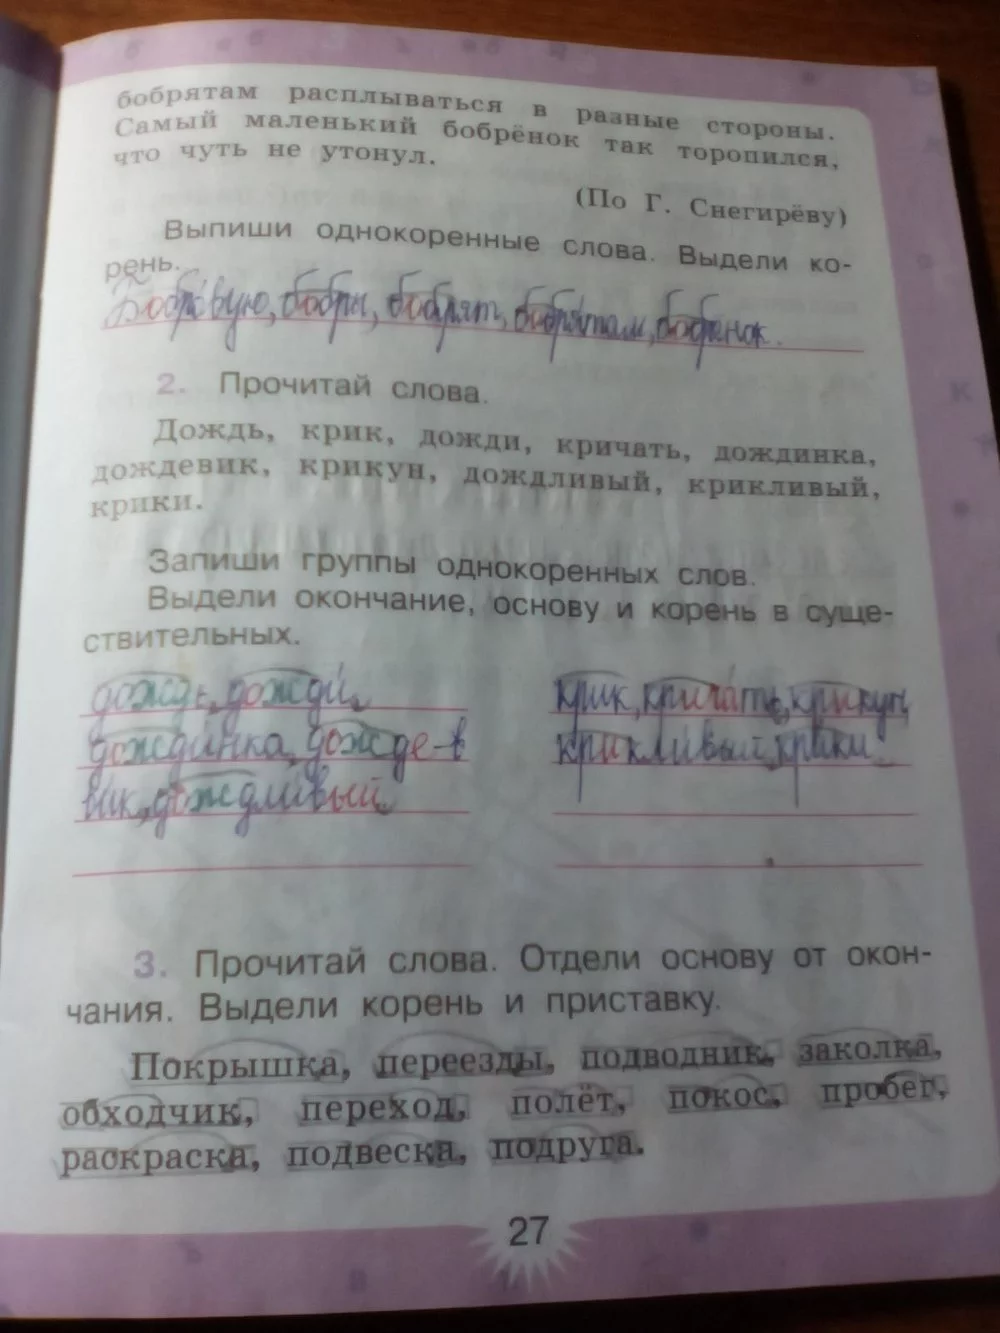 бобрятам расплываться в разные стороны.
Самый маленький бобрёнок так торопился,
что чуть не утонул.
(По Г. Снегирёву)
Выпиши однокоренные слова. Выдели ко-
рень.
Бобровую, бобры, бобрят, бобрятам, бобрёнок.
2. Прочитай слова.
Дождь, крик, дожди, кричать, дождинка,
дождевик, крикун, дождливый, крикливый,
крики.
Запиши группы однокоренных слов.
Выдели окончание, основу и корень в суще-
ствительных.
дождь, дожди,
дождинка, дожде-в
вик, дождливый
крик, кричать, крикун,
крикливый, крики
3. Прочитай слова. Отдели основу от окон-
чания. Выдели корень и приставку.
Покрышка, переезды, подводник, заколка,
обходчик, переход, полёт, покос, пробег,
раскраска, подвеска, подруга.
27